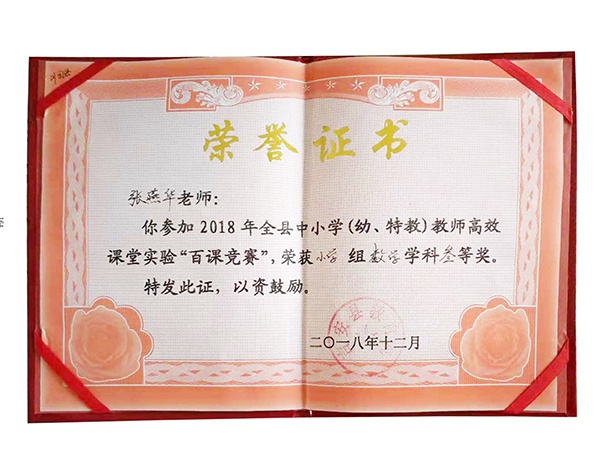 荣誉证书
张燕华老师：
你参加2018年全县中小学（幼、特教）教师高效
课堂实验“百课竞赛”，荣获小学组数学学科叁等奖。
特发此证，以资鼓励。
二〇一八年十二月